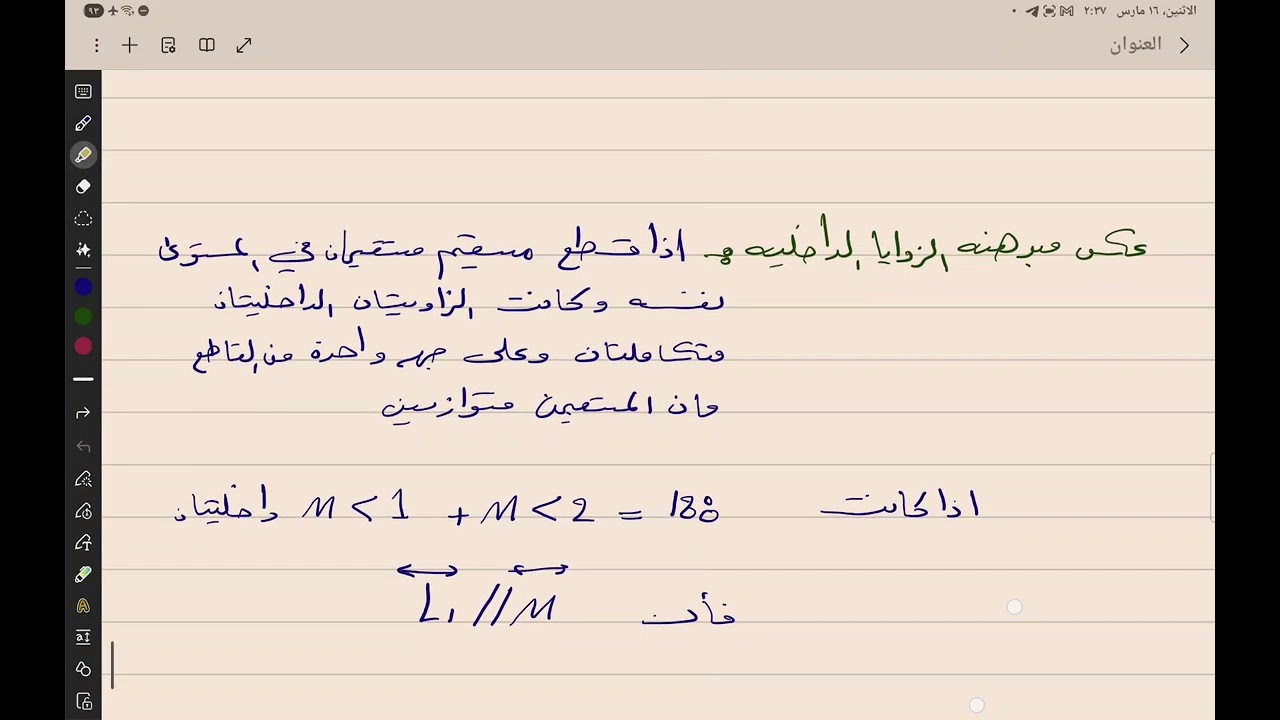 الاثنين، ١٦ مارس ٢:٣٧
٩٣
العنوان
عكس مبرهنه الزوايا الداخليه : اذا قطع مستقيم مستقيمان في المستوى
نفسه وكانت الزاويتان الداخليتان
متكاملتان وعلى جهه واحدة من القاطع
فان المستقيمين متوازيين
اذا كانت M < 1 + M < 2 = 180 داخليتان
فأن L, // M